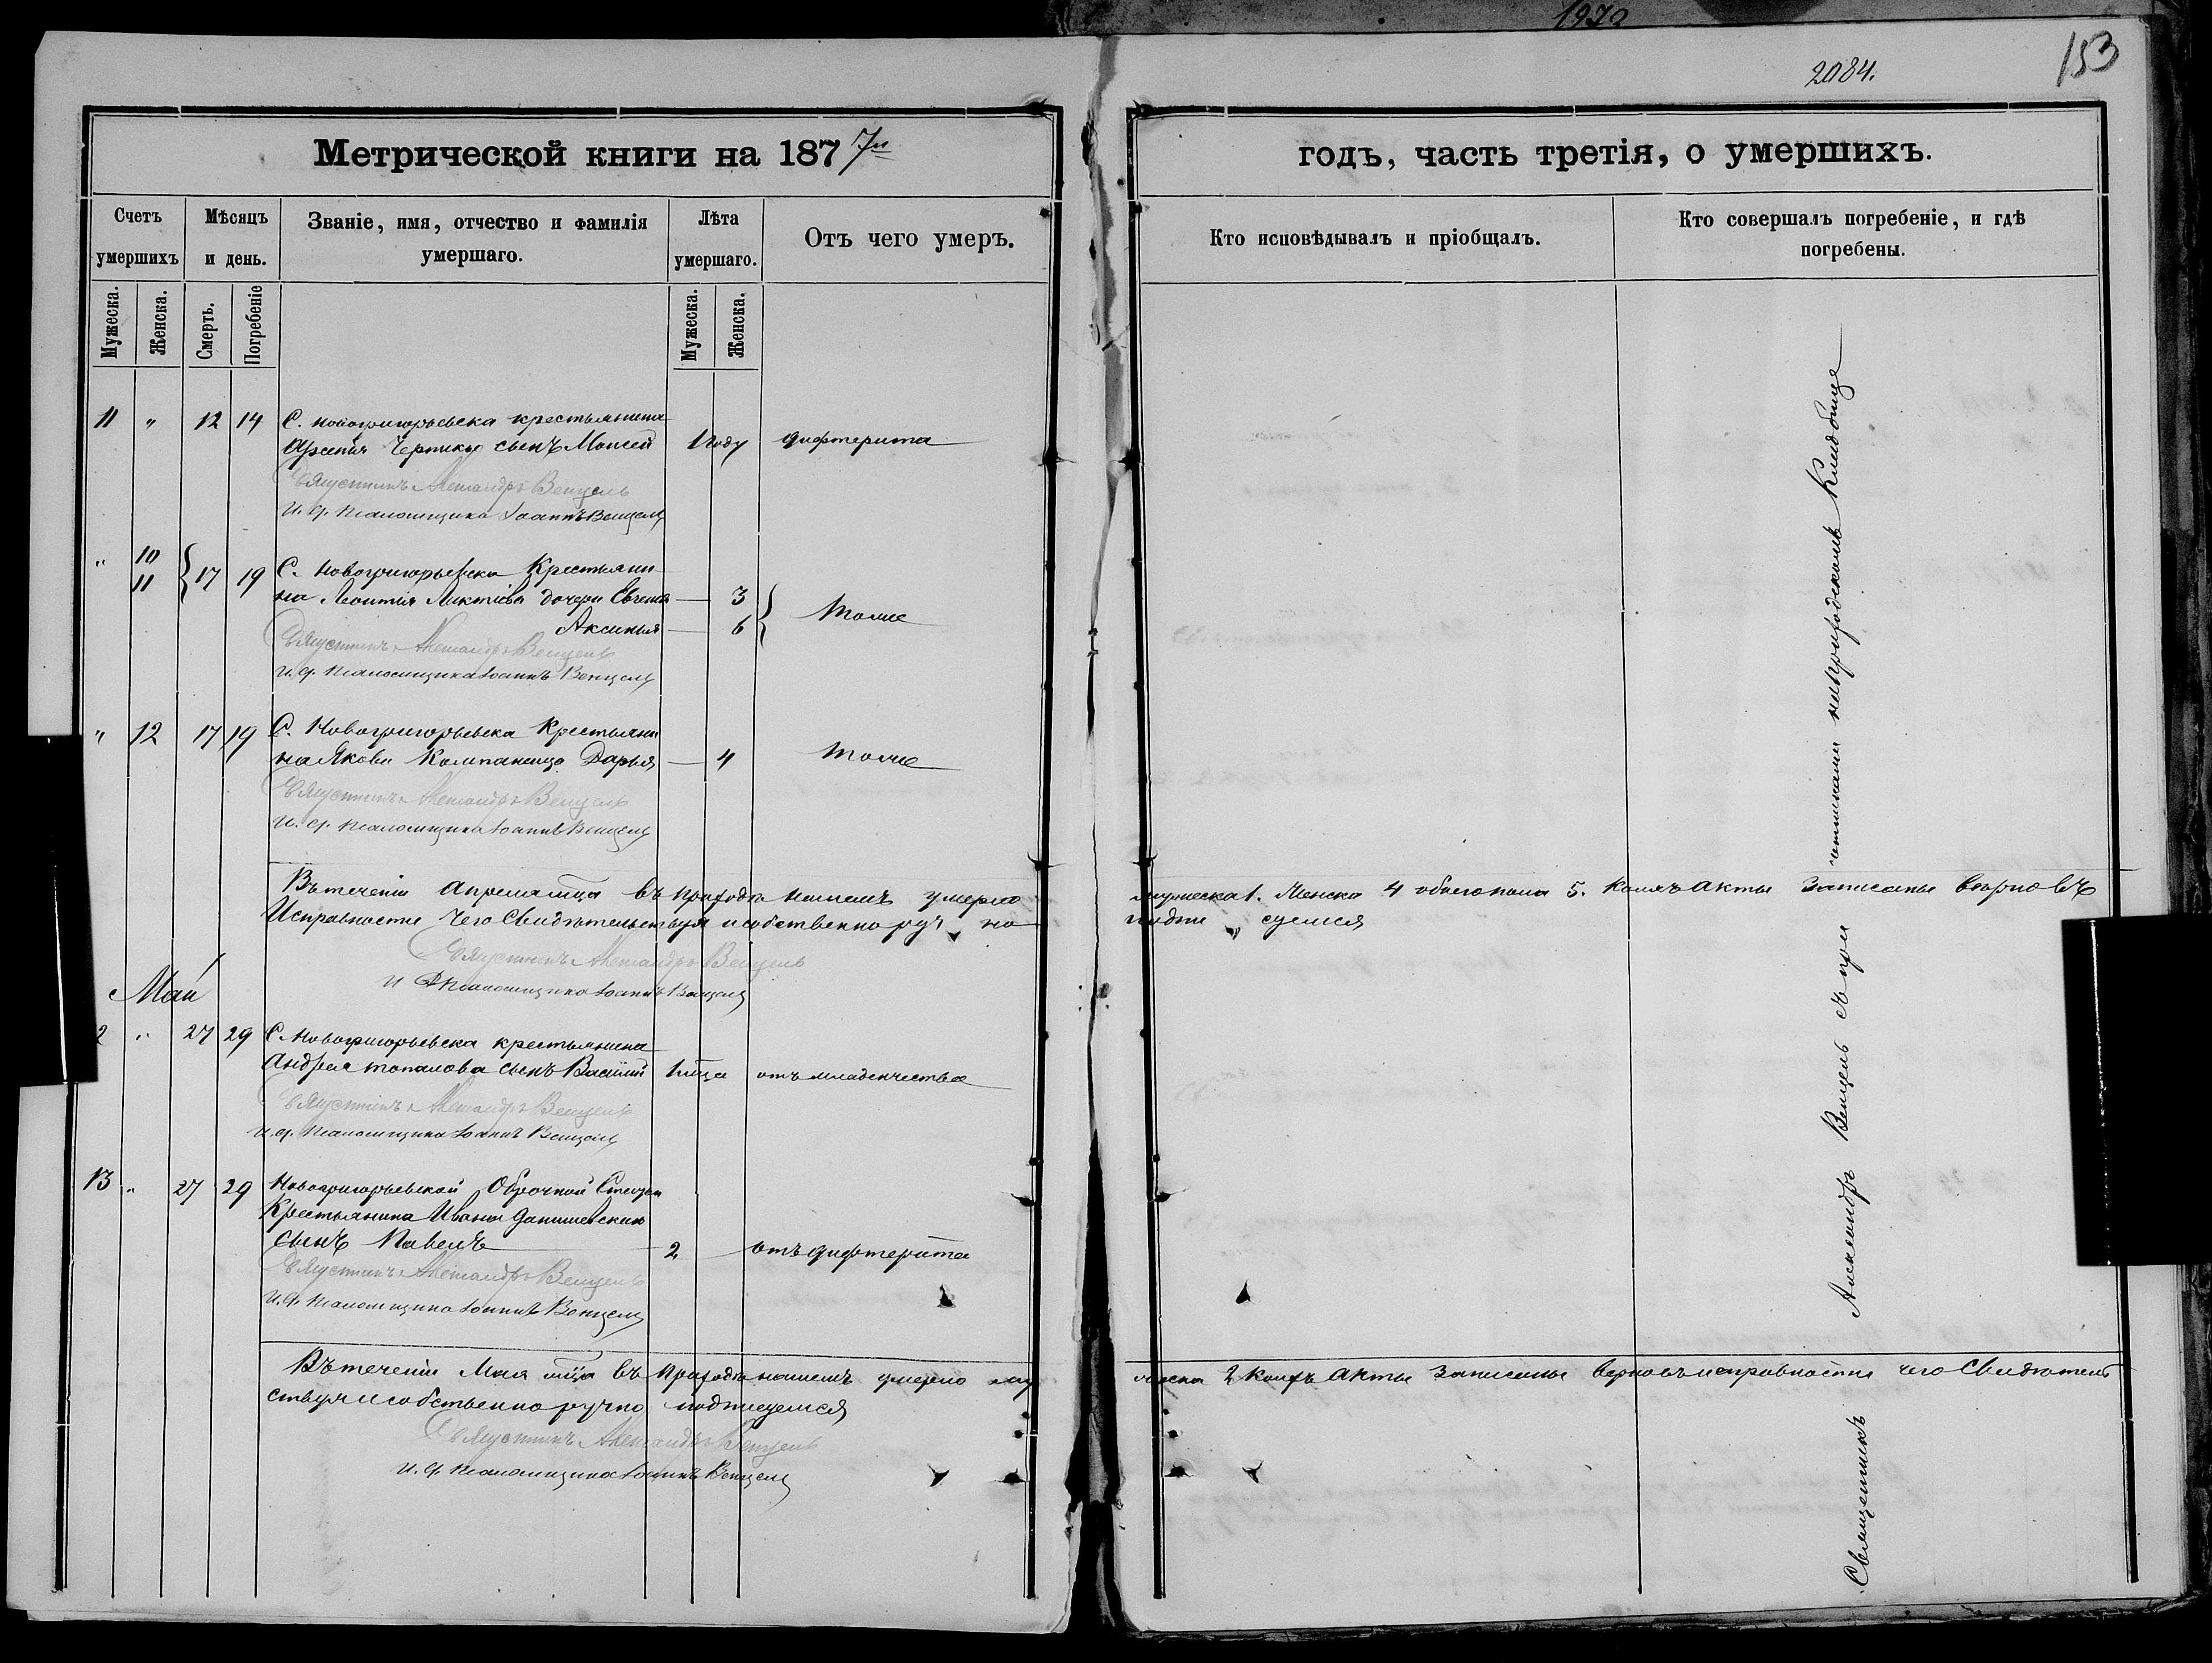 1972
2084.
153
Метрической книги на 1877й
годъ, часть третія, о умершихъ.
Счетъ умершихъ
Мѣсяцъ и день.
Званіе, имя, отчество и фамилія умершаго.
Лѣта умершаго.
Отъ чего умеръ.
Кто исповѣдывалъ и пріобщалъ.
Кто совершалъ погребеніе, и гдѣ погребены.
Мужеска.
Женска.
Смерть.
Погребеніе
Мужеска.
Женска.
11 " 12 14 С. Новогригорьевска крестьянина
Арсенія сынъ Моисей 1 году дифтерита
Священникъ Александръ Венцель
И. д. Псаломщика Іоаннъ Венцель
" 10
11 17 19 С. Новогригорьевска Крестьяни
на Леонтія дочери 3
Аксинья 6 тоже
Священникъ Александръ Венцель
И. д. Псаломщика Іоаннъ Венцель
" 12 17 19 С. Новогригорьевска Крестьяни
на Якова Компанейца Дарья 4 тоже
Священникъ Александръ Венцель
И. д. Псаломщика Іоаннъ Венцель
Въ теченіи Апреля мца въ приходѣ нашемъ умерло мужеска 1. Женска 4 обоего пола 5. Акты записаны верно въ
Исправности чего Свидѣтельствуя и собственноруч но подпи суемся
Священникъ Александръ Венцель
И Д Псаломщика Іоаннъ Венцель
Май
2 " 27 29 С. Новогригорьевска крестьянина
Андрея Топалова сынъ Василій 1 мца отъ младенчества
Священникъ Александръ Венцель
И. д. Псаломщика Іоаннъ Венцель
13 " 27 29 Новогригорьевской Оброчной Статьи
Крестьянина Ивана Данишевскаго
сынъ Павелъ 2 отъ дифтерита
Священникъ Александръ Венцель
И. д. Псаломщика Іоаннъ Венцель
Въ теченіи Мая мца въ приходѣ нашемъ умерло му жеска 2 Акты записаны верно въ исправности чего Свидѣтель
ствуя и собственноручно подписуемся
Священникъ Александръ Венцель
И. д. Псаломщика Іоаннъ Венцель
Священникъ Александръ Венцель съ при чтниками на приходскомъ Кладбище